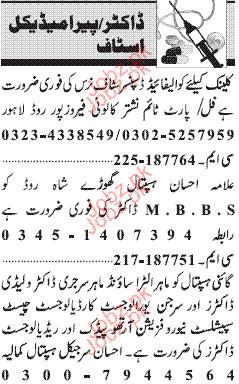 ڈاکٹر/پیرامیڈیکل
اسٹاف
کلینک کیلئے کوالیفائیڈ ڈسپنسر سٹاف نرس کی فوری ضرورت
ہے فل/ پارٹ ٹائم نشتر کالونی فیروزپور روڈ لاہور
0323-4338549/0302-5257959
سی ایم۔225-187764
علامہ احسان ہسپتال گھوڑے شاہ روڈ کو
M.B.B.S ڈاکٹر کی فوری ضرورت ہے
رابطہ 0345-1407394
سی ایم۔217-187751
گائنی ہسپتال کو ماہر الٹراساؤنڈ ماہر سرجری ڈاکٹر و لیڈی
ڈاکٹرز اور سرجن یورالوجسٹ کارڈیالوجسٹ چیسٹ
سپیشلسٹ نیوروفزیشن آرتھوپیڈک اور ریڈیالوجسٹ
ڈاکٹر کی ضرورت ہے۔ احسان سرجیکل ہسپتال کمالیہ
0300-7944564
Jobz.pk